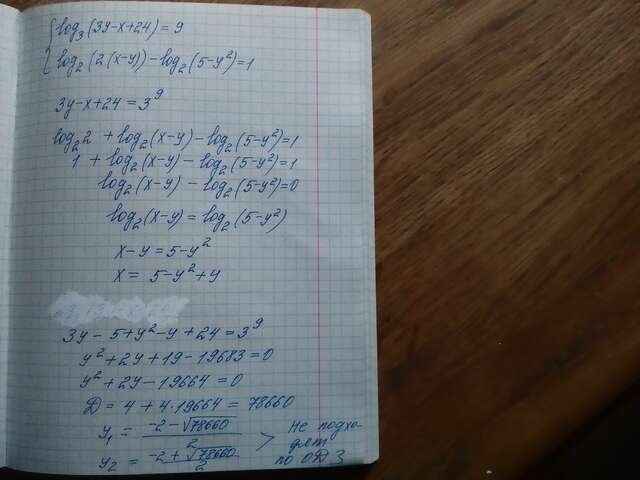 { log₃(3y-x+24) = 9
log₂(2(x-y)) - log₂(5-y²) = 1
3y-x+24 = 3⁹
log₂2 + log₂(x-y) - log₂(5-y²) = 1
1 + log₂(x-y) - log₂(5-y²) = 1
log₂(x-y) - log₂(5-y²) = 0
log₂(x-y) = log₂(5-y²)
x-y = 5-y²
x = 5-y²+y
3y-5+y²-y+24 = 3⁹
y²+2y+19-19683 = 0
y²+2y-19664 = 0
D = 4+4·19664 = 78660
y₁ = (-2-√78660)/2
y₂ = (-2+√78660)/2
> Не подхо-
дят
по ОДЗ